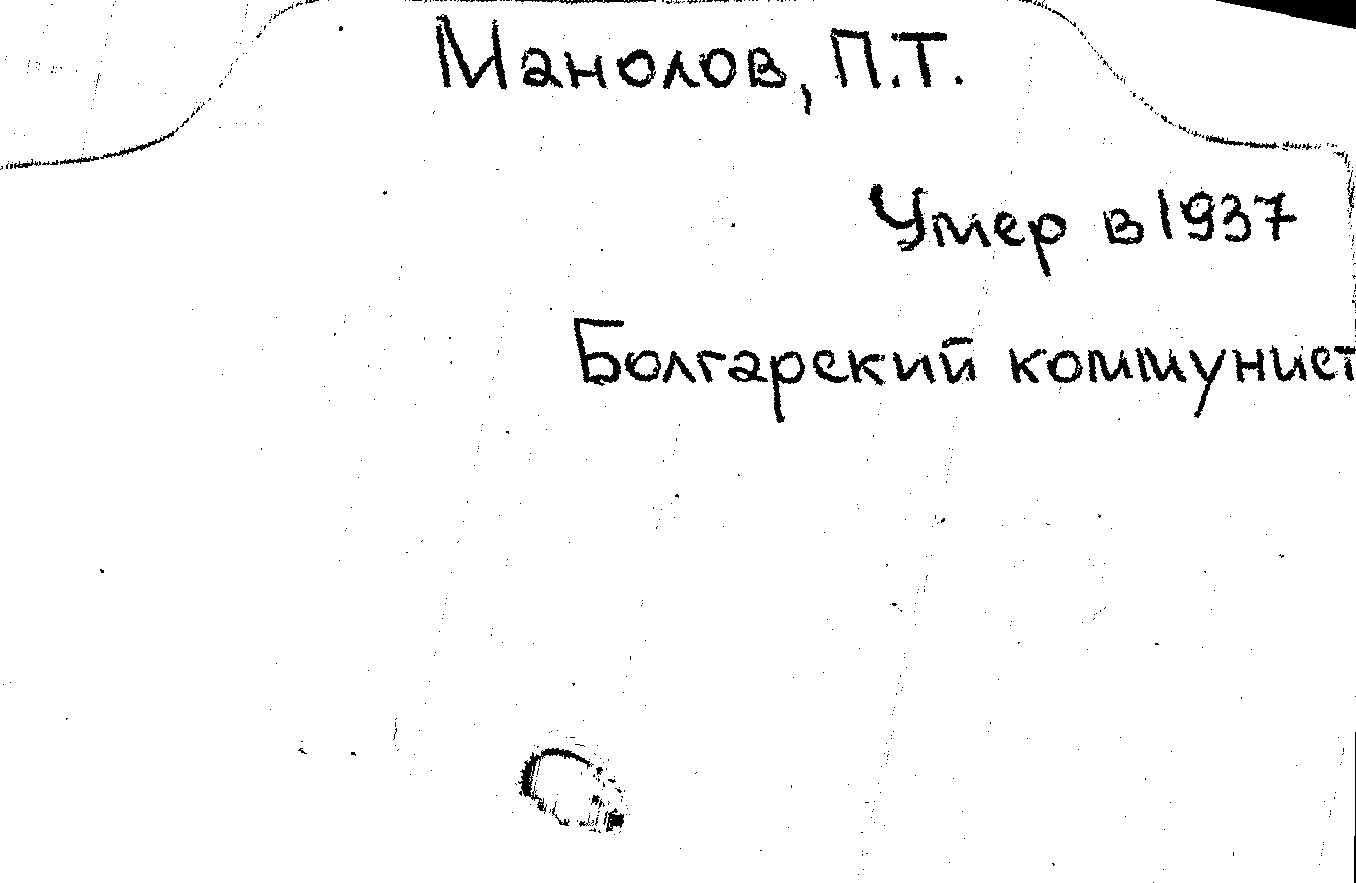 Манолов, П.Т.
Умер в 1937
Болгарский коммунист